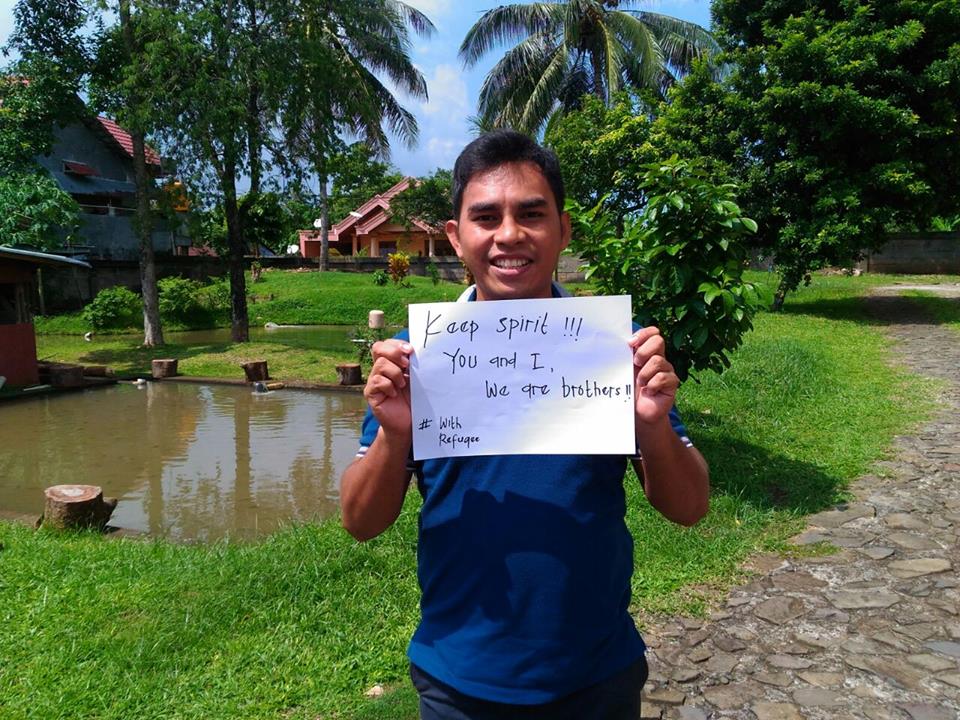 Keep spirit !!!
You and I,
We are brothers !!
# With
Refugee